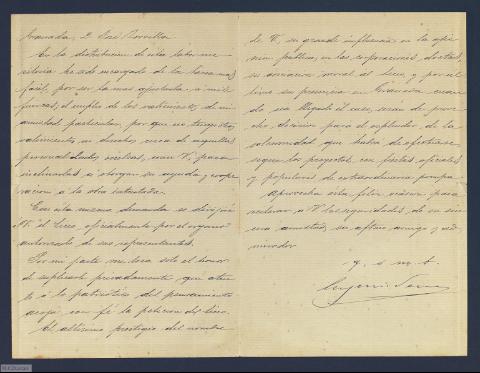 Granada, D. José Zorrilla
En la distribucion de esta labor me-
ritoria he sido encargado de la tarea mas
facil, por ser la mas ajustada a mis
fuerzas, el empleo de los valimientos de mi
amistad particular, por que no tengo otro
valimiento ni derecho cerca de aquellas
personalidades ilustres, como V, para
inclinarlas a otorgar su ayuda y coope-
racion a la obra intentada.
Con esta misma demanda se dirijirá
a V. el Liceo, oficialmente por el organo
autorizado de sus representantes.
Por mi parte me toca solo el honor
de suplicarle privadamente que aten-
to a lo patriótico del pensamiento
acoja con fé la peticion del Liceo.
El altisimo prestigio del nombre
de V, su grande influencia en la opi-
nion publica, en las corporaciones doctas,
su adhesion moral al Liceo y por el
timo su presencia en Granada cuan-
do sea llegado el caso, serán de prove-
cho decisivo para el esplendor de la
solemnidad que habra de efectuarse
segun los proyectos, con fiestas oficiales
y populares de extraordinaria pompa.
Aprovecha esta feliz ocasion para
reiterar a V las seguridades de su sin-
cera amistad, su aftmo amigo y ad-
mirador
q. s. m. b.